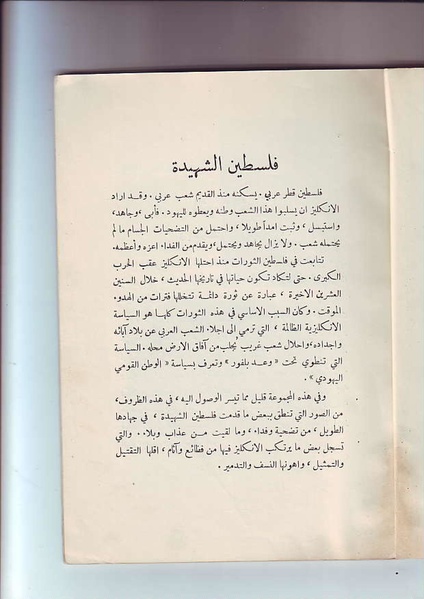 فلسطين الشهيدة
فلسطين قطر عربي. يسكنه منذ القديم شعب عربي. وقد اراد
الانكليز ان يسلبوا هذا الشعب وطنه ويعطوه لليهود. فأبى، وجاهد،
واستبسل، وثبت امداً طويلا، واحتمل من التضحيات الجسام ما لم
يحتمله شعب. ولا يزال يجاهد ويحتمل، ويقدم من الفداء اعزه وأعظمه.
تتابعت في فلسطين الثورات منذ احتلها الانكليز عقب الحرب
الكبرى. حتى لتكاد تكون حياتها في تاريخها الحديث، خلال السنين
العشرين الاخيرة، عبارة عن ثورة دائمة تتخللها فترات من الهدوء
الموقت. وكان السبب الاساسي في هذه الثورات كلها هو السياسة
الانكليزية الظالمة، التي ترمي الى اجلاء الشعب العربي عن بلاد آبائه
واجداده، واحلال شعب غريب يجلب من آفاق الارض محله. السياسة
التي تنطوي تحت «وعد بلفور» وتعرف بسياسة «الوطن القومي
اليهودي».
وفي هذه المجموعة قليل مما تيسر الوصول اليه، في هذه الظروف،
من الصور التي تنطق ببعض ما قدمت فلسطين الشهيدة، في جهادها
الطويل، من تضحية وفداء. وما لقيت من عذاب وبلاء. والتي
تسجل بعض ما يرتكب الانكليز فيها من فظائع وآثام، اقلها التقتيل
والتمثيل، واهونها النسف والتدمير.